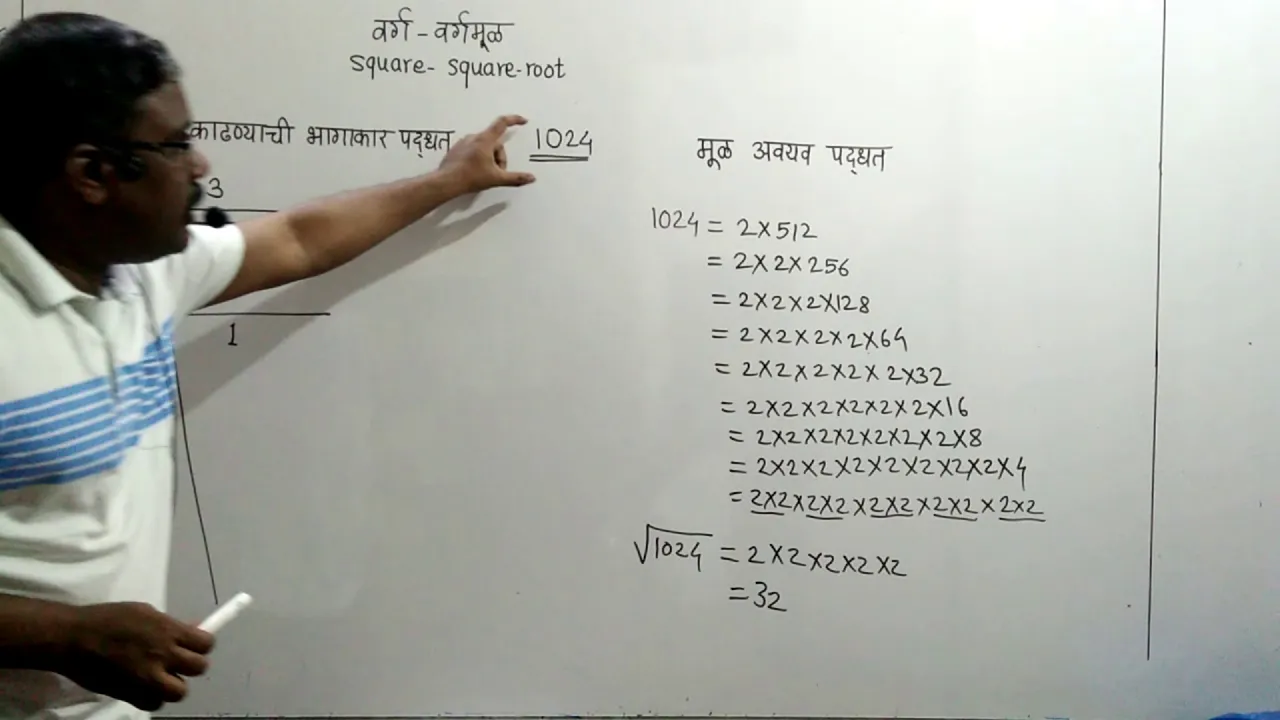 वर्ग - वर्गमूळ
square- square-root
काढण्याची भागाकार पद्धत 1024
3
1
मूळ अवयव पद्धत
1024 = 2×512
= 2×2×256
= 2×2×2×128
= 2×2×2×2×64
= 2×2×2×2×2×32
= 2×2×2×2×2×2×16
= 2×2×2×2×2×2×2×8
= 2×2×2×2×2×2×2×2×4
= 2×2×2×2×2×2×2×2×2×2
√1024 = 2×2×2×2×2
= 32